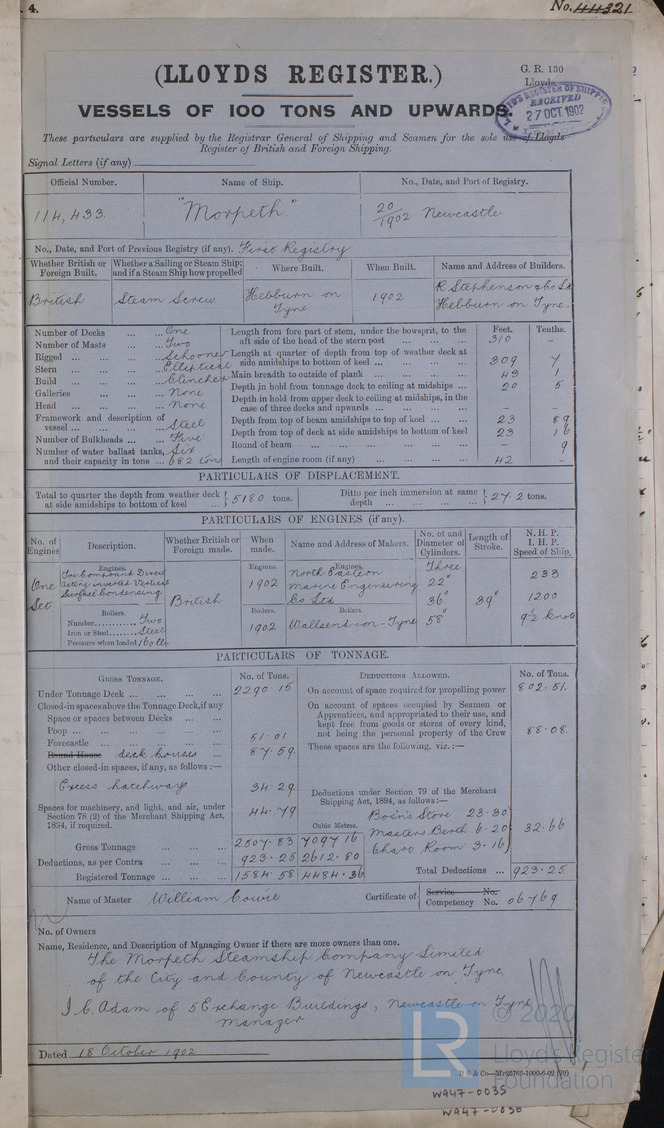 4.
No. 44321
(LLOYDS REGISTER.)
G. R. 130
Lloyds
LLOYD'S REGISTER OF SHIPPING
RECEIVED
27 OCT. 1902
VESSELS OF 100 TONS AND UPWARDS.
These particulars are supplied by the Registrar General of Shipping and Seamen for the sole use of Lloyds
Register of British and Foreign Shipping.
Signal Letters (if any)
Official Number. Name of Ship. No., Date, and Port of Registry.
114,433. "Morpeth." 20/1902 Newcastle
No., Date, and Port of Previous Registry (if any). First Registry
Whether British or Foreign Built. Whether a Sailing or Steam Ship; and if a Steam Ship how propelled Where Built. When Built. Name and Address of Builders.
British Steam Screw Hebburn on Tyne 1902 R Stephenson & Co Ld Hebburn on Tyne.
Number of Decks ... One
Number of Masts ... Two
Rigged ... Schooner
Stern ... Elliptical
Build ... Clincher
Galleries ... None
Head ... None
Framework and description of vessel ... Steel
Number of Bulkheads ... Five
Number of water ballast tanks, and their capacity in tons ... Six 682 tons
Feet. Tenths.
Length from fore part of stem, under the bowsprit, to the aft side of the head of the stern post ... 310 –
Length at quarter of depth from top of weather deck at side amidships to bottom of keel ... 309 7
Main breadth to outside of plank ... 43 1
Depth in hold from tonnage deck to ceiling at midships ... 20 5
Depth in hold from upper deck to ceiling at midships, in the case of three decks and upwards ... – –
Depth from top of beam amidships to top of keel ... 23 89
Depth from top of deck at side amidships to bottom of keel 23 16
Round of beam ... 9
Length of engine room (if any) ... 42 –
PARTICULARS OF DISPLACEMENT.
Total to quarter the depth from weather deck at side amidships to bottom of keel ... 5180 tons.
Ditto per inch immersion at same depth ... 27.2 tons.
PARTICULARS OF ENGINES (if any).
No. of Engines Description. Whether British or Foreign made. When made. Name and Address of Makers. No. of and Diameter of Cylinders. Length of Stroke. N. H. P. I. H. P. Speed of Ship.
One Set
Engines.
Tri Compound Direct
Acting inverted Vertical
Surface Condensing
Boilers.
Number Two
Iron or Steel Steel
Pressure when loaded 160 lbs
British
Engines.
1902
Boilers.
1902
Engines.
North Eastern
Marine Engineering
Co Ltd
Boilers.
Wallsend-on-Tyne
Three
22"
36"
58"
39"
233
1200
9½ knots
PARTICULARS OF TONNAGE.
GROSS TONNAGE. No. of Tons.
Under Tonnage Deck ... 2290.15
Closed-in spaces above the Tonnage Deck, if any
Space or spaces between Decks ...
Poop ...
Forecastle ... 51.01
Round House deck houses ... 87.59
Other closed-in spaces, if any, as follows:—
Excess hatchways 34.29
Spaces for machinery, and light, and air, under Section 78 (2) of the Merchant Shipping Act, 1894, if required. 44.79
Cubic Metres.
Gross Tonnage ... 2507.83 7097.16
Deductions, as per Contra ... 923.25 2612.80
Registered Tonnage ... 1584.58 4484.36
DEDUCTIONS ALLOWED. No. of Tons.
On account of space required for propelling power 802.51.
On account of spaces occupied by Seamen or Apprentices, and appropriated to their use, and kept free from goods or stores of every kind, not being the personal property of the Crew 88.08.
These spaces are the following, viz.:—
Deductions under Section 79 of the Merchant Shipping Act, 1894, as follows:—
Bosn's Store 23.30
Masters Berth 6.20
Chart Room 3.16
32.66
Total Deductions ... 923.25
Name of Master William Cowie
Certificate of Service No. Competency No. 06769
No. of Owners
Name, Residence, and Description of Managing Owner if there are more owners than one.
The Morpeth Steamship Company Limited
of the City and County of Newcastle on Tyne.
J. C. Adam of 5 Exchange Buildings, Newcastle on Tyne
Manager
Dated 18 October 1902
© 2020
LR
Lloyd's Register
Foundation
W947-0035
W947-0030